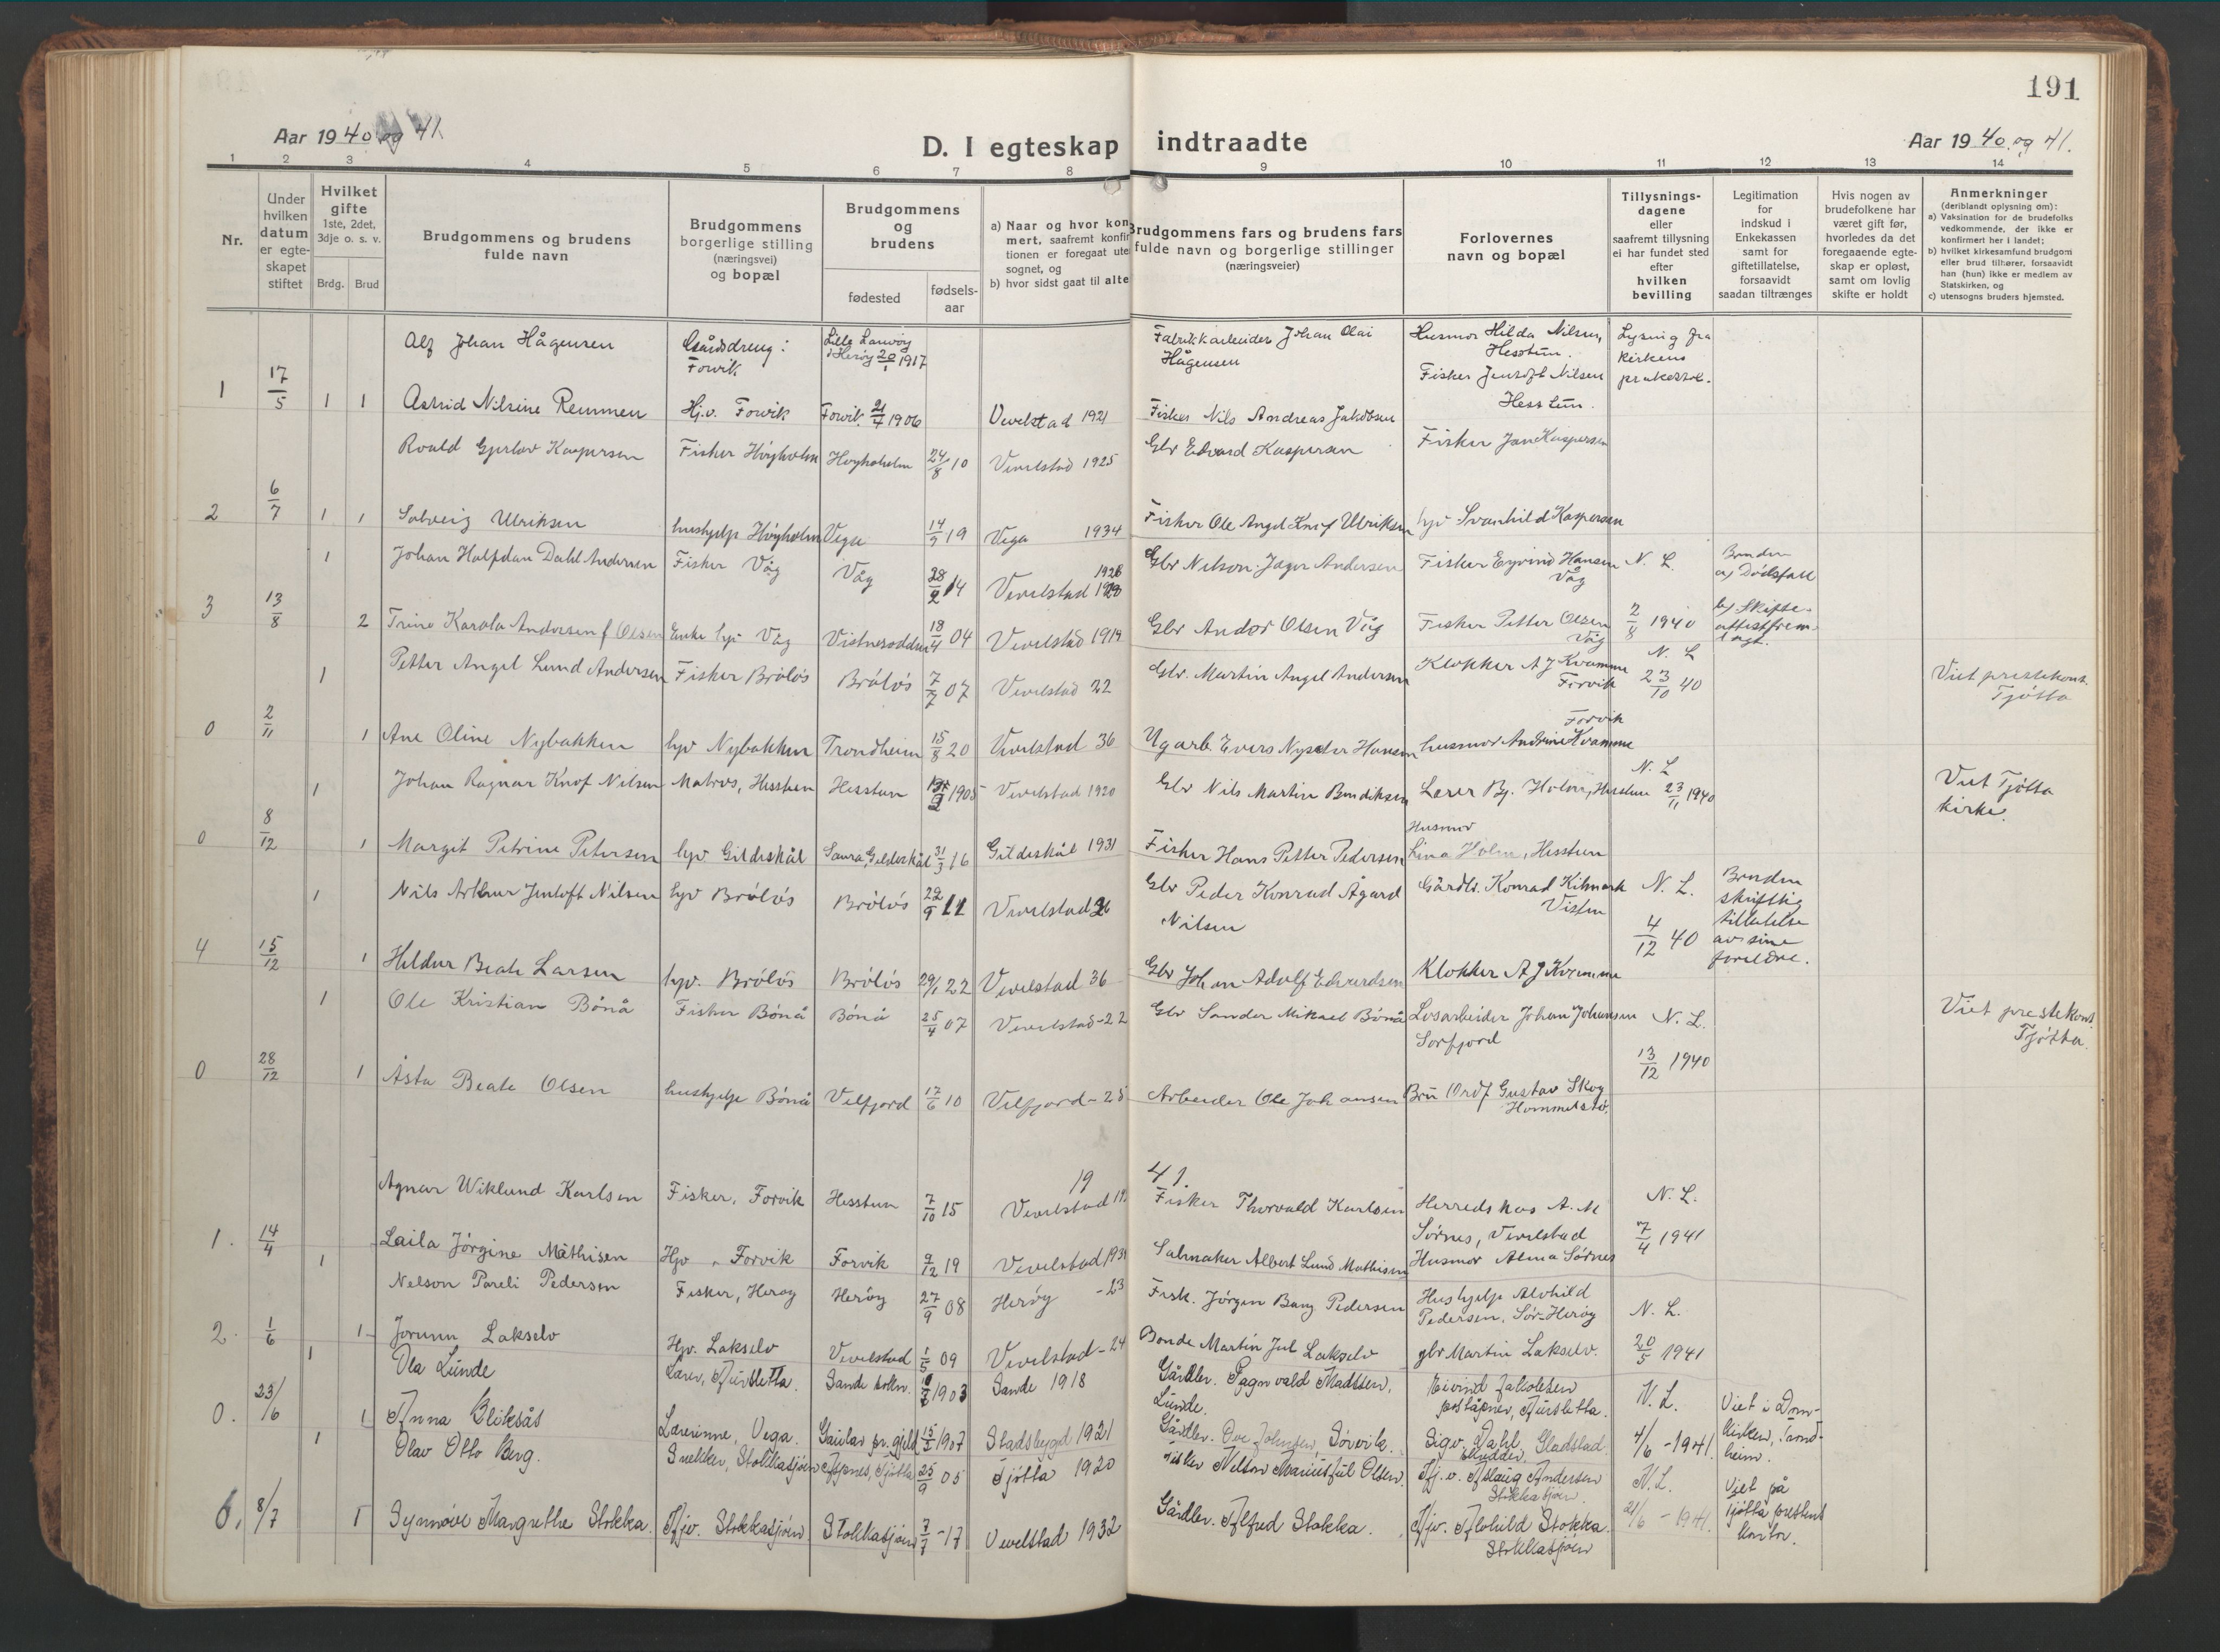 191
Aar 1940 og 41.
D. I egteskap indtraadte
Aar 1940 og 41.
1 2 3 4 5 6 7 8 9 10 11 12 13 14
Nr.
Under hvilken datum er egteskapet stiftet
Hvilket gifte 1ste, 2det, 3dje o. s. v.
Brdg. Brud
Brudgommens og brudens fulde navn
Brudgommens borgerlige stilling (næringsvei) og bopæl
Brudgommens og brudens
fødested
fødsels-aar
a) Naar og hvor kon
mert, saafremt konfir
tionen er foregaat ute
sognet, og
b) hvor sidst gaat til alte
Brudgommens fars og brudens fars
fulde navn og borgerlige stillinger
(næringsveier)
Forlovernes
navn og bopæl
Tillysnings-
dagene
eller
saafremt tillysning
ei har fundet sted
efter
hvilken
bevilling
Legitimation
for
indskud i
Enkekassen
samt for
giftetillatelse,
forsaavidt
saadan tiltrænges
Hvis nogen av
brudefolkene har
været gift før,
hvorledes da det
foregaaende egte-
skap er opløst,
samt om lovlig
skifte er holdt
Anmerkninger
(deriblandt oplysning om):
a) Vaksination for de brudefolks
vedkommende, der ikke er
konfirmert her i landet;
b) hvilket kirkesamfund brudgom
eller brud tilhører, forsaavidt
han (hun) ikke er medlem av
Statskirken, og
c) utensogns bruders hjemsted.
Alf Johan Hågensen Gårdsdreng: Forvik Herøy 20/1 1917 Fabrikkarbeider Johan Olai Hågensen Husmor Hilda Nilsen, Hesstun. Lysing fra kirkens prekestol.
1 17/5 1 1 Astrid Nilsine Remmen Hj.v. Forvik Forvik 21/4 1906 Vevelstad 1921 Fisker Nils Andreas Jakobsen Fisker Jentoft Nilsen Hesstun.
Roald Gjerlov Kaspersen Fisker Høyholm Høyholm 24/8 10 Vevelstad 1925 Gbr Edvard Kaspersen Fisker Jan Kaspersen
2 6/7 1 1 Solveig Ulriksen hushjelp Høyholm Vega 14/9 19 Vega 1934 Fisker Ole Angel Knif Ulriksen hjv Svanhild Kaspersen
1 Johan Halfdan Dahl Andersen Fisker Våg Våg 28/2 14 Vevelstad 1928 Gbr Nelson Jager Andersen Fisker Eyvind Hansen Våg N. L. Bruden a) Dødsfall
3 13/8 2 Trine Karola Andersen f Olsen Enke hjv Våg Vistnesodden 18/4 04 Vevelstad 1919 Gbr Andor Olsen Våg Fisker Petter Olsen Våg 2/8 1940 b) Skifteattest fremlagt.
1 Petter Angel Lund Andersen Fisker Bröløs Bröløs 7/7 07 Vevelstad 22 Gbr. Martin Angel Andersen Klokker A J Kvamme Forvik N. L 23/10 40 Viet prestekont. Tjøtta
0 2/11 1 Ane Oline Nybakken hjv Nybakken Trondheim 15/8 20 Vevelstad 36 Ugarb. Evers Hansen husmor Andrine Kvamme Forvik
1 Johan Ragnar Knof Nilsen Matros, Hesstun Hesstun 1905 Vevelstad 1920 Gbr Nils Martin Bendiksen Lærer Bj. Holm, Hesstun N. L 23/11 1940 Viet Tjøtta kirke.
0 8/12 1 Margit Petrine Petersen hjv Gildeskål Gildeskål 31/3 16 Gildeskål 1931 Fisker Hans Petter Pedersen Husmor Lina Holm, Hesstun
1 Nils Arthur Jentoft Nilsen hjv Bröløs Bröløs 22/9 11 Vevelstad 26 Gbr Peder Konrad Ågard Nilsen Gårdbr. Konrad Kilmark Visten N. L. 4/12 40 Bruden skriftlig tillatelse av sine foreldre.
4 15/12 1 Hildur Beate Larsen hjv. Bröløs Bröløs 29/1 22 Vevelstad 36 Gbr Johan Adolf Edvardsen Klokker A J Kvamme
1 Ole Kristian Bönå Fisker Bönå Bönå 25/4 07 Vevelstad - 22 Gbr Sander Mikael Bönå Løsarbeider Johan Johansen Sørfjord N. L. 13/12 1940 Viet prestekont. Tjøtta.
0 28/12 1 Åsta Beate Olsen hushjelp Bönå Velfjord 17/6 10 Velfjord - 25 Arbeider Ole Johansen Gustav Skog Hommelstø.
19 41.
Agnar Wiklund Karlsen Fisker, Forvik Hesstun 7/10 15 Vevelstad Fisker Thorvald Karlsen Herredskas A. M Sørnes, Vevelstad N. L.
1. 14/4 1 Laila Jörgine Mathisen Hjv. Forvik Forvik 9/12 19 Vevelstad 1934 Salmaker Albert Lund Mathisen Husmor Alma Sørnes 7/4 1941
Nelson Pareli Pedersen Fisker, Herøy Herøy 27/9 08 Herøy - 23 Fisk. Jörgen Bang Pedersen Hushjelp Alvhild Pedersen, Sør-Herøy N. L.
2. 1/6 1 Jorunn Lakselv Hjv. Lakselv Vevelstad 1/5 09 Vevelstad - 24 Bonde Martin Jul Lakselv gbr Martin Lakselv. 20/5 1941
1 Ola Lunde Lærer, Sande 1903 Sande 1918 Gårdbr. Ragnvald Madssen, Lunde. Eivind Jakobsen poståpner, N. L. Viet i Domkirken, Trondheim.
0. 23/6 1 Anna Bliksås Lærerinne, Vega. Gaular pr.gjeld 15/2 1907 Stadsbygd 1921 Gårdbr. Ove Johnsen, Sørvik. Sigv. Dahl, Gladstad. 4/6 - 1941
1 Olav Otto Berg. Snekker, Stokkasjøen Tjøtta 25/9 05 Tjøtta 1920 Fisker Nelson Marius Jul Olsen. Hj.v. Aslaug Andersen Stokkasjøen. N. L. Viet på Tjøtta prestens kontor.
0. 8/7 1 Synnøve Margrethe Stokka. Hjv. Stokkasjøen Stokkasjøen 7/7 - 17 Vevelstad 1932 Gårdbr. Alfred Stokka. Hjv. Alvhild Stokka Stokkasjøen 21/6 - 1941.